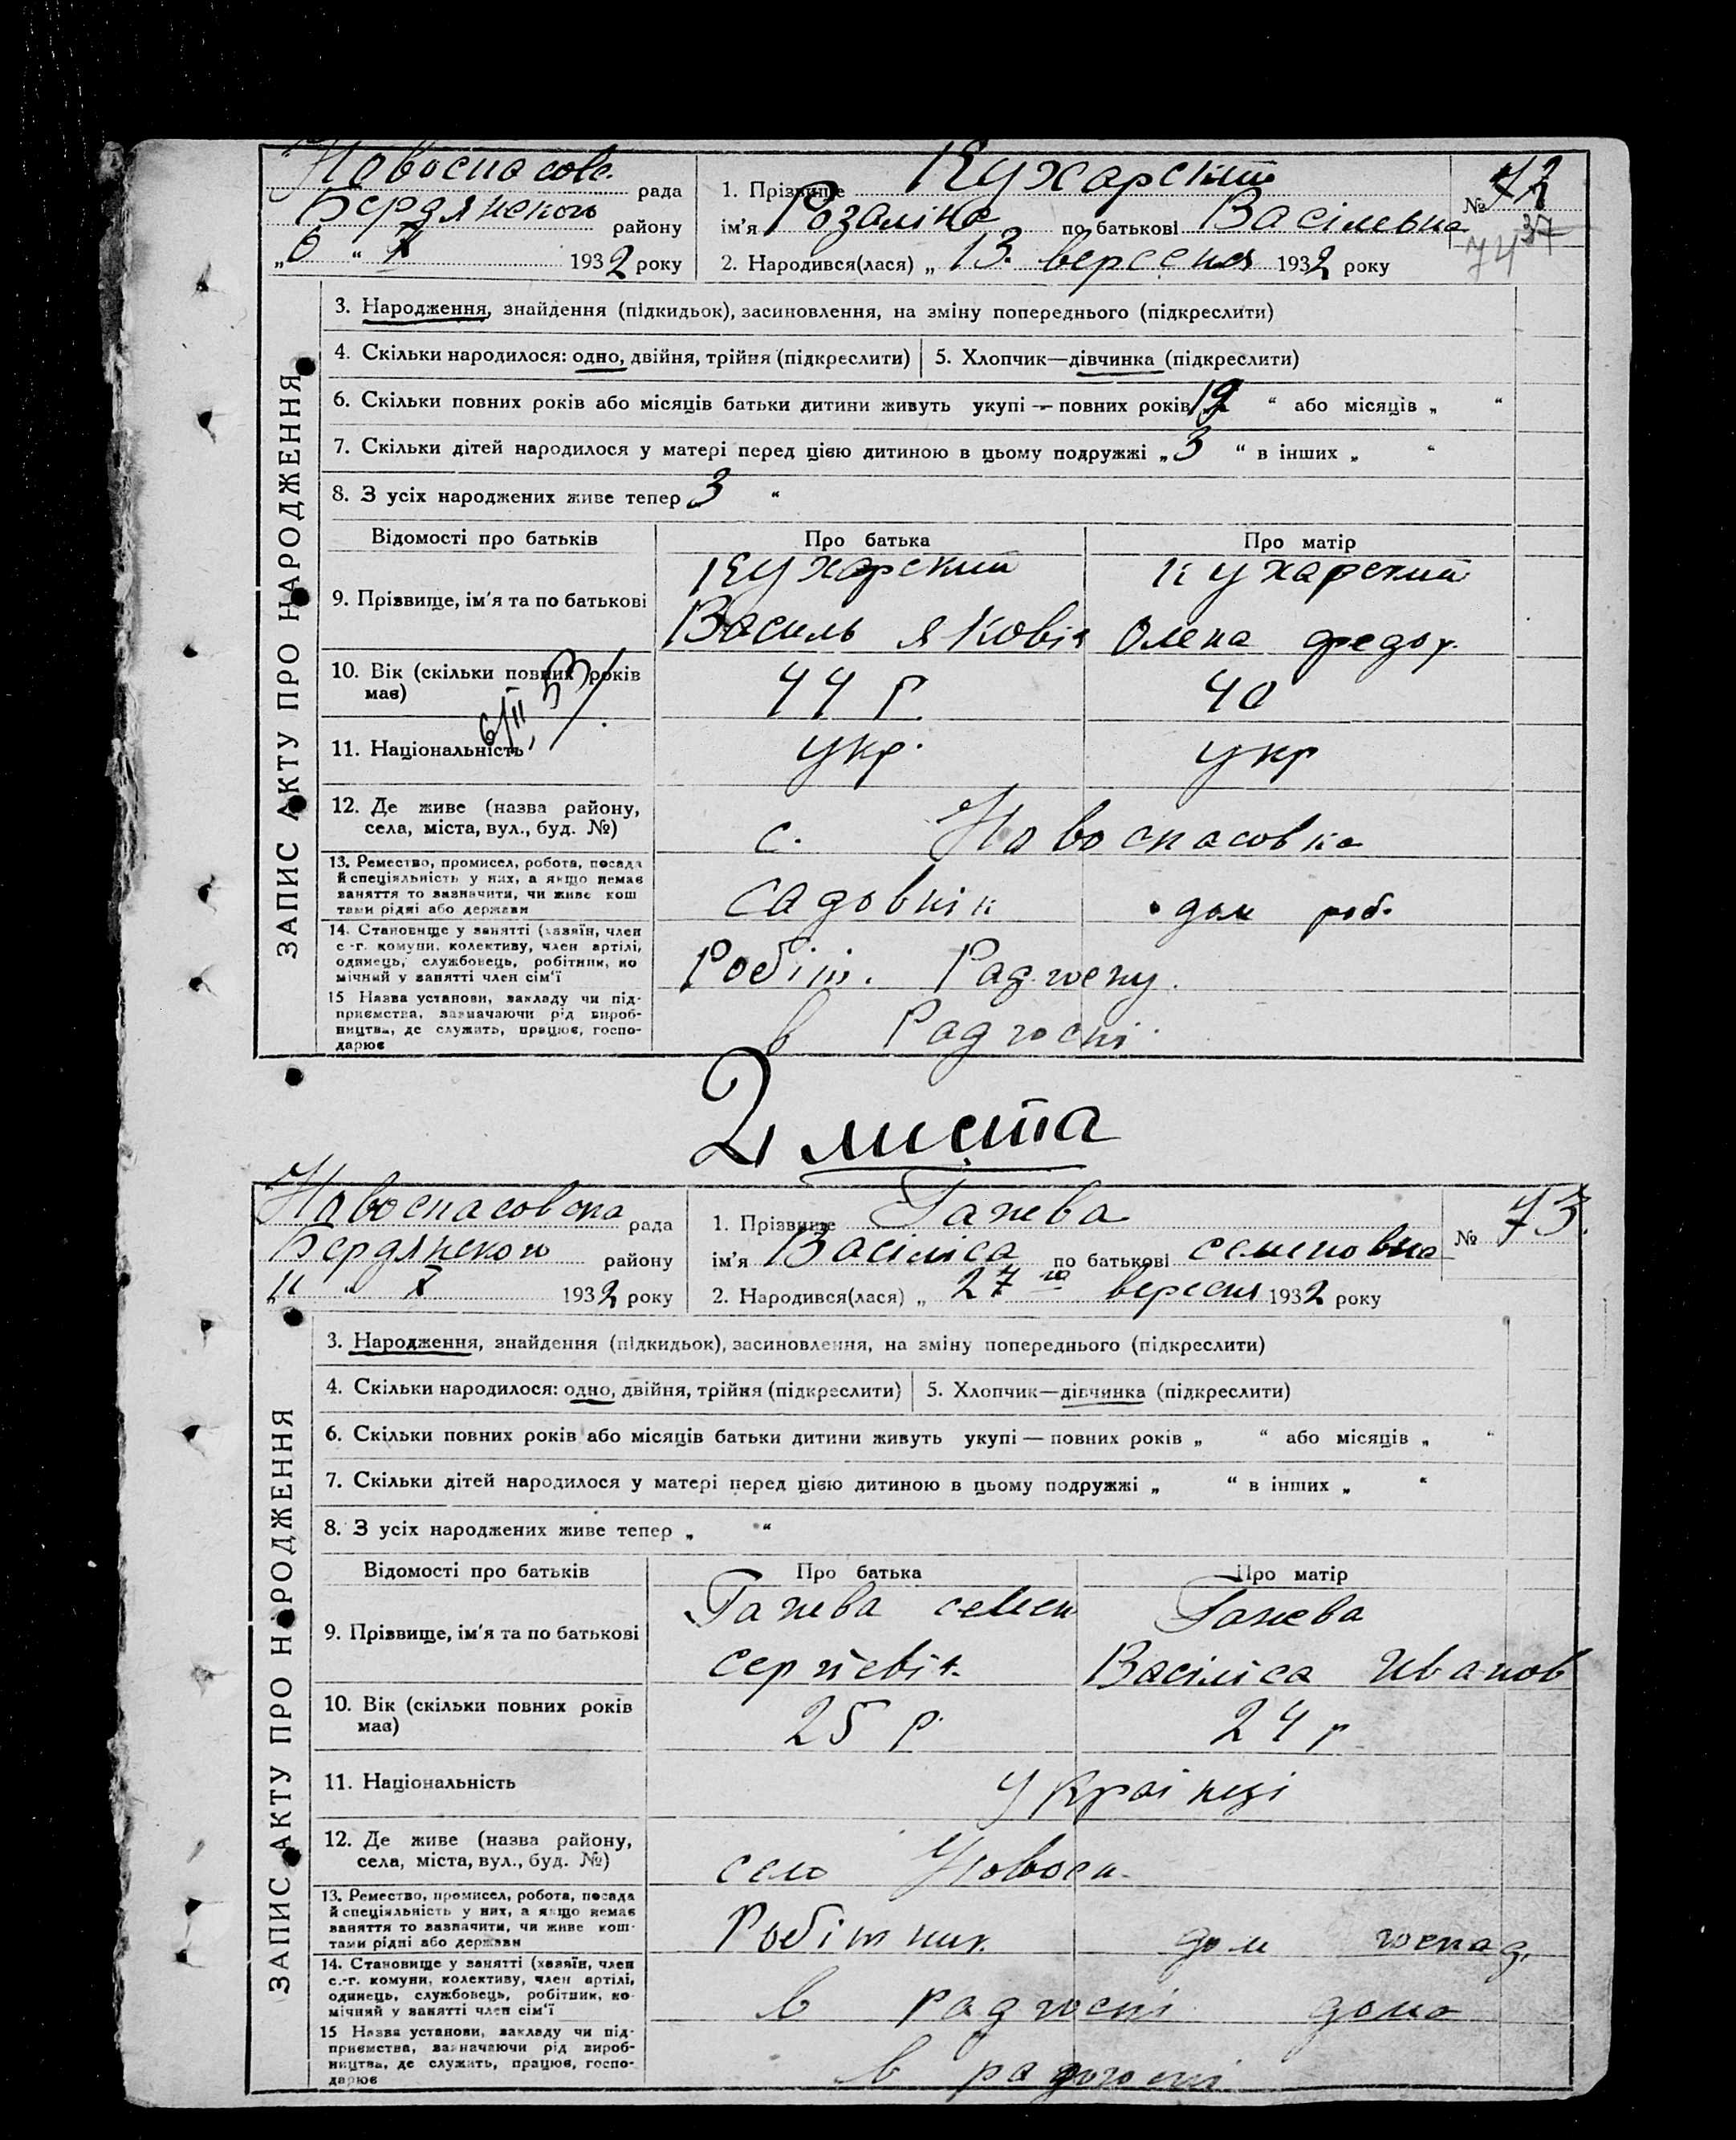 Новоспасовс. рада
Бердянського району
„6 “ X 1932 року
1. Прізвище Кухарский
ім'я Розаліна по батькові Васілевна
2. Народився(лася) „ 13. вересня 1932 року
№ 72
74 37
ЗАПИС АКТУ ПРО НАРОДЖЕННЯ
3. Народження, знайдення (підкидьок), засиновлення, на зміну попереднього (підкреслити)
4. Скільки народилося: одно, двійня, трійня (підкреслити) 5. Хлопчик—дівчинка (підкреслити)
6. Скільки повних років або місяців батьки дитини живуть укупі — повних років „19 “ або місяців „ “
7. Скільки дітей народилося у матері перед цією дитиною в цьому подружжі „3 “ в інших „ “
8. З усіх народжених живе тепер 3 “
Відомості про батьків Про батька Про матір
9. Прізвище, ім'я та по батькові
Кухарский Кухарский
Василь Яковіч Олена Федор.
10. Вік (скільки повних років має) 44 р. 40
6/II 53
11. Національність укр. укр
12. Де живе (назва району, села, міста, вул., буд. №)
с. Новоспасовка
13. Ремество, промисел, робота, посада
й спеціяльність у них, а якщо немає
заняття то зазначити, чи живе кош
тами рідні або держави
садовнік дом роб.
14. Становище у занятті (хазяїн, член
с-г. комуни, колективу, член артілі,
одинець, службовець, робітник, по
мічний у занятті член сім'ї
Робіт. Радгоспу.
15 Назва установи, закладу чи під-
приємства, зазначаючи рід вироб-
ництва, де служить, працює, госпо-
дарює
в Радгоспі
2 листа
Новоспасовска рада
Бердянского району
„11 “ X 1932 року
1. Прізвище Ганева
ім'я Васіліса по батькові семеновна
2. Народився(лася) „ 27 го вересня 1932 року
№ 73.
ЗАПИС АКТУ ПРО НАРОДЖЕННЯ
3. Народження, знайдення (підкидьок), засиновлення, на зміну попереднього (підкреслити)
4. Скільки народилося: одно, двійня, трійня (підкреслити) 5. Хлопчик—дівчинка (підкреслити)
6. Скільки повних років або місяців батьки дитини живуть укупі — повних років „ “ або місяців „ “
7. Скільки дітей народилося у матері перед цією дитиною в цьому подружжі „ “ в інших „ “
8. З усіх народжених живе тепер „ “
Відомості про батьків Про батька Про матір
9. Прізвище, ім'я та по батькові
Ганева семен Ганева
сергієвіч. Васіліса Иванов
10. Вік (скільки повних років має) 25 р. 24 р
11. Національність Українці
12. Де живе (назва району, села, міста, вул., буд. №)
село Новосп.
13. Ремество, промисел, робота, посада
й спеціяльність у них, а якщо немає
заняття то зазначити, чи живе кош-
тами рідні або держави
Робітник дом господ.
14. Становище у занятті (хазяїн, член
с.-г. комуни, колективу, член артілі,
одинець, службовець, робітник, по-
мічний у занятті член сім'ї
в радгоспі дома
15 Назва установи, закладу чи під-
приємства, зазначаючи рід вироб-
ництва, де служить, працює, госпо-
дарює
в радгоспі